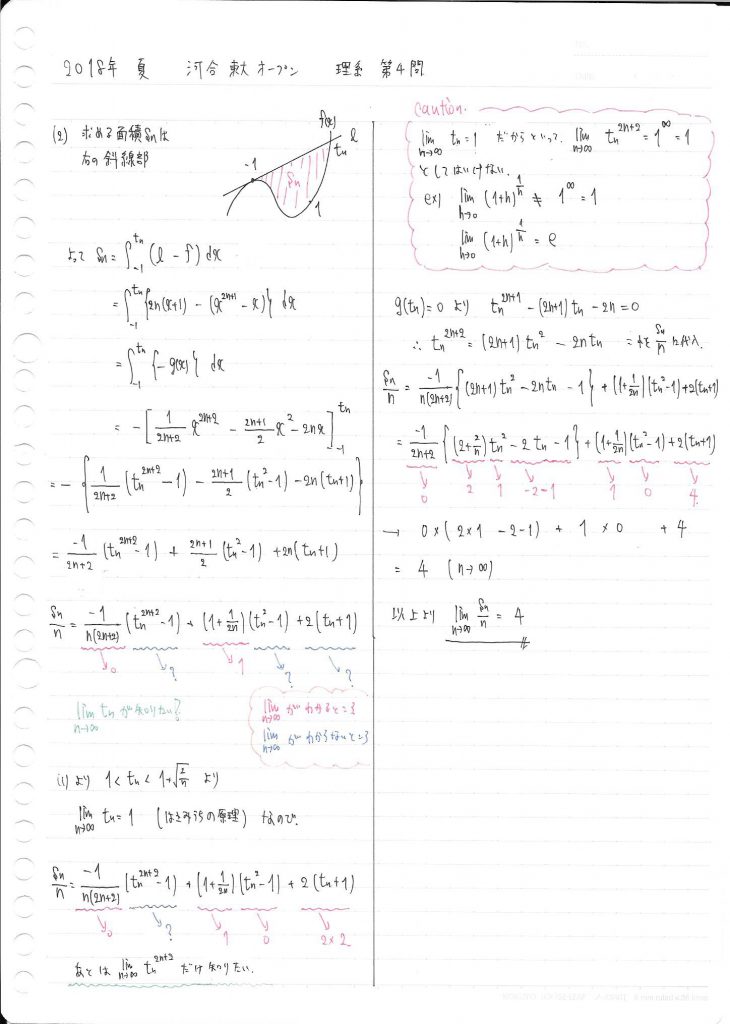 2018年 夏 河合 東大オープン 理系 第4問
(2) 求める面積 Sn は
右の斜線部
f(x)
l
tn
-1
Sn
1
よって Sn = ∫_{-1}^{tn} (l - f) dx
= ∫_{-1}^{tn} {2n(x+1) - (x^{2n+1} - x)} dx
= ∫_{-1}^{tn} {-g(x)} dx
= -[1/(2n+2) x^{2n+2} - (2n+1)/2 x^2 - 2nx]_{-1}^{tn}
= -{1/(2n+2) (tn^{2n+2} - 1) - (2n+1)/2 (tn^2 - 1) - 2n(tn+1)}
= -1/(2n+2) (tn^{2n+2} - 1) + (2n+1)/2 (tn^2 - 1) + 2n(tn+1)
Sn/n = -1/(n(2n+2)) (tn^{2n+2} - 1) + (1 + 1/2n)(tn^2 - 1) + 2(tn+1)
0 ? 1 ? ?
lim_{n→∞} tn が知りたい?
lim_{n→∞} がわかるところ
lim_{n→∞} がわからないところ
(1)より 1 < tn < 1+√(2/n) より
lim_{n→∞} tn = 1 (はさみうちの原理) なので.
Sn/n = -1/(n(2n+2)) (tn^{2n+2} - 1) + (1 + 1/2n)(tn^2 - 1) + 2(tn+1)
0 ? 1 0 2×2
あとは lim_{n→∞} tn^{2n+2} だけ知りたい.
caution.
lim_{n→∞} tn = 1 だからといって, lim_{n→∞} tn^{2n+2} = 1^∞ = 1
としてはいけない.
ex) lim_{h→0} (1+h)^{1/h} ≠ 1^∞ = 1
lim_{h→0} (1+h)^{1/h} = e
g(tn) = 0 より tn^{2n+1} - (2n+1)tn - 2n = 0
∴ tn^{2n+2} = (2n+1)tn^2 - 2ntn Sn/n に代入.
Sn/n = -1/(n(2n+2)) {(2n+1)tn^2 - 2ntn - 1} + (1 + 1/2n)(tn^2 - 1) + 2(tn+1)
= -1/(2n+2) {(2 + 2/n)tn^2 - 2tn - 1} + (1 + 1/2n)(tn^2 - 1) + 2(tn+1)
0 2 1 -2-1 1 0 4
→ 0×(2×1 -2-1) + 1×0 + 4
= 4 (n→∞)
以上より lim_{n→∞} Sn/n = 4